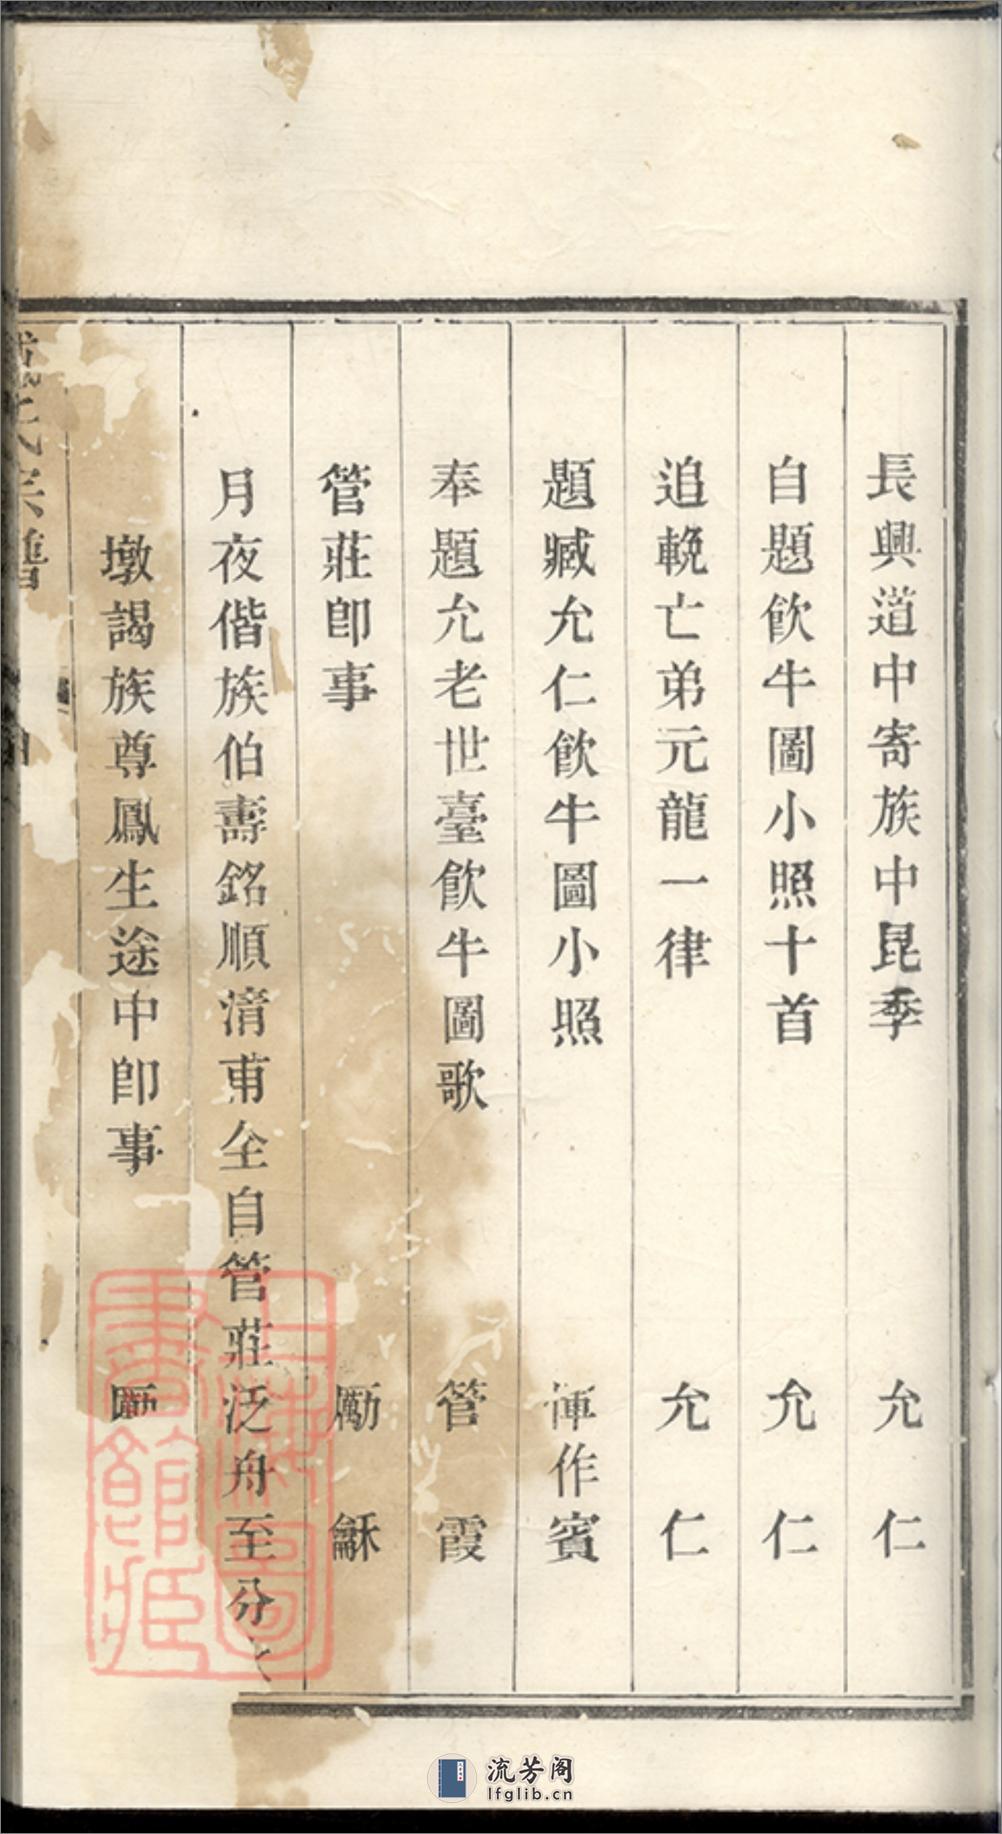 長興道中寄族中昆季 允仁
自題飮牛圖小照十首 允仁
追輓亡弟元龍一律 允仁
題臧允仁飮牛圖小照 惲作賓
奉題允老世臺飮牛圖歌 管霞
管莊卽事 勵龢
月夜偕族伯壽銘順淸甫仝自管莊泛舟至分
墩謁族尊鳳生途中卽事 勵
氏宗譜
上海圖書館藏
流芳阁
lfglib.cn